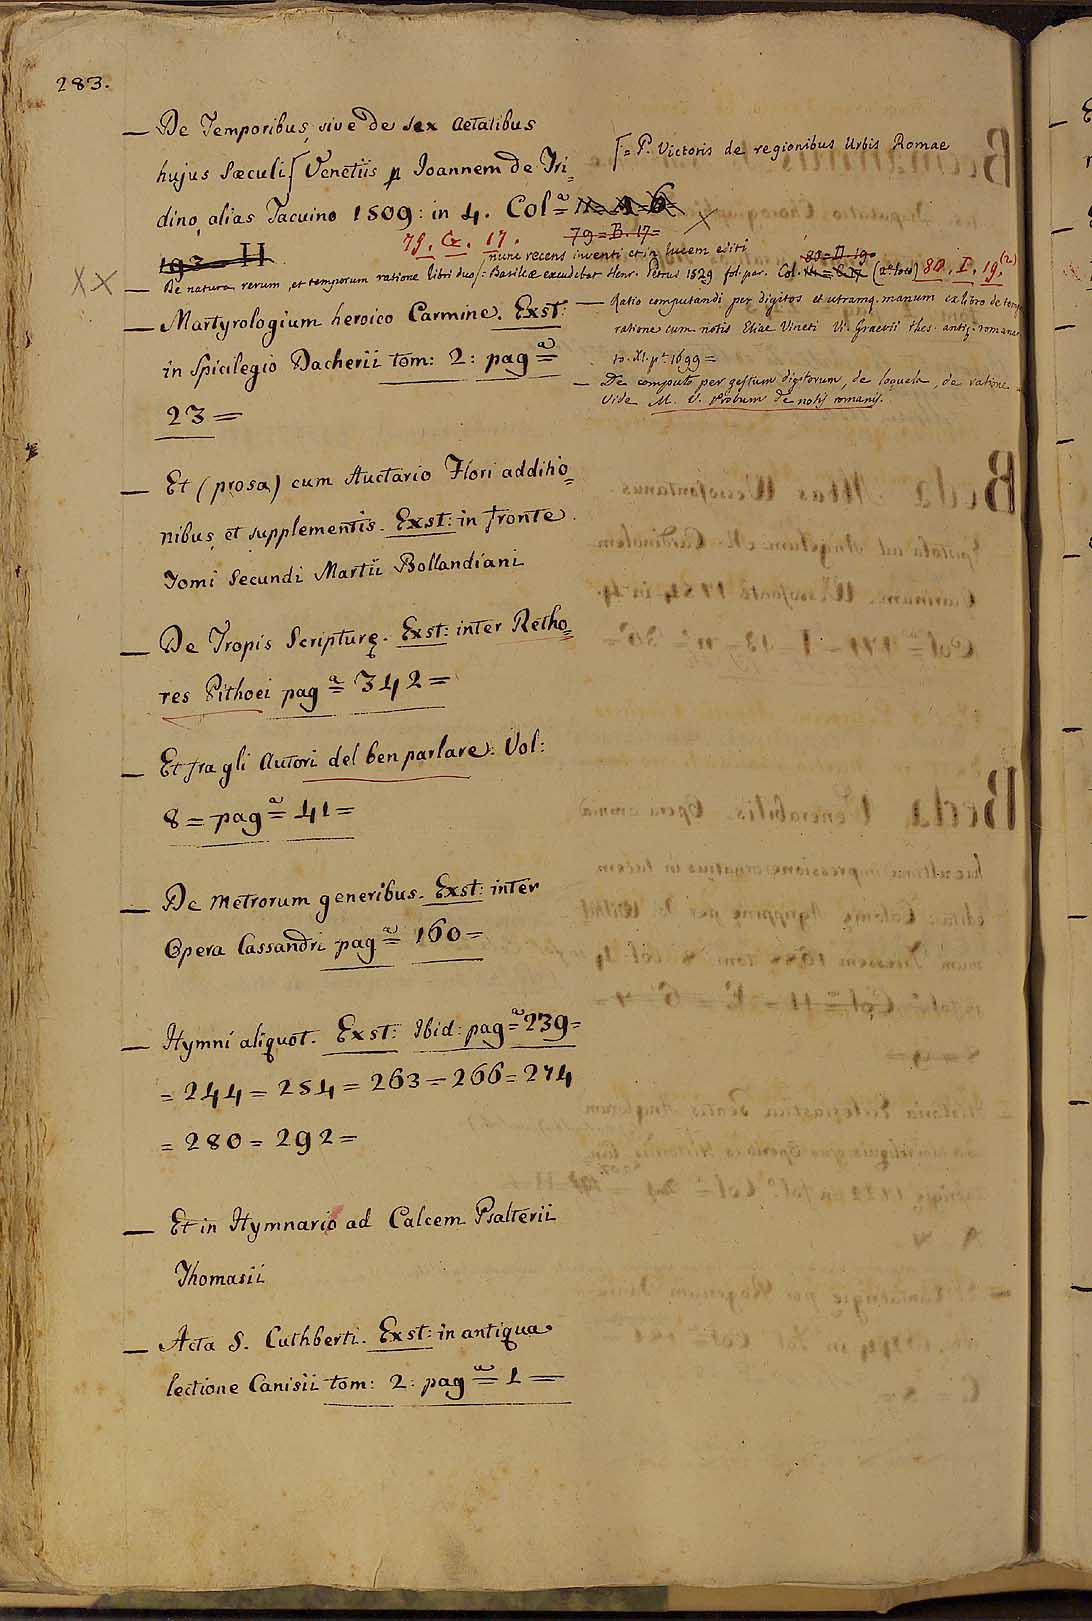 283.
— De Temporibus, sive de sex Aetatibus
hujus Sæculi [ Venetiis p Ioannem de Tri=
dino, alias Tacuino 1509: in 4. Colª=
[= P. Victoris de regionibus Urbis Romae
79 = B. 17 =
79. G. 17.
192 = H
nunc recens inventi et in lucem editi
80 = D. 19 =
XX — De natura rerum, et temporum ratione libri duo / = Basileæ excudebat Henr. Petrus 1529 fol. par. Col. (2º loco) 80. I. 19. (2)
— Martyrologium heroico Carmine. Exst:
in Spicilegio Dacherii tom: 2: pagª=
23 =
— Ratio computandi per digitos et utramq. manum ex libro de temp
ratione cum notis Eliae Vineti V. Graevii thes. antiq. roman
to. XI. pª 1699 =
— De computo per gestum digitorum, de loquela, de ratione
Vide M. V. Probum de notis romanis.
— Et (prosa) cum Auctario Flori additio=
nibus, et supplementis. Exst: in fronte
Tomi Secundi Martii Bollandiani
— De Tropis Scripturę. Exst: inter Retho=
res Pithoei pagª= 342 =
— Et fra gli Autori del ben parlare. Vol:
8 = pagª= 41 =
— De Metrorum generibus. Exst: inter
Opera Cassandri pagª= 160 =
— Hymni aliquot. Exst: Ibid: pagª= 239 =
= 244 = 254 = 263 = 266 = 274
= 280 = 292 =
— Et in Hymnario ad Calcem Psalterii
Thomasii
— Acta S. Cuthberti. Exst: in antiqua
lectione Canisii tom: 2: pagª= 1 =